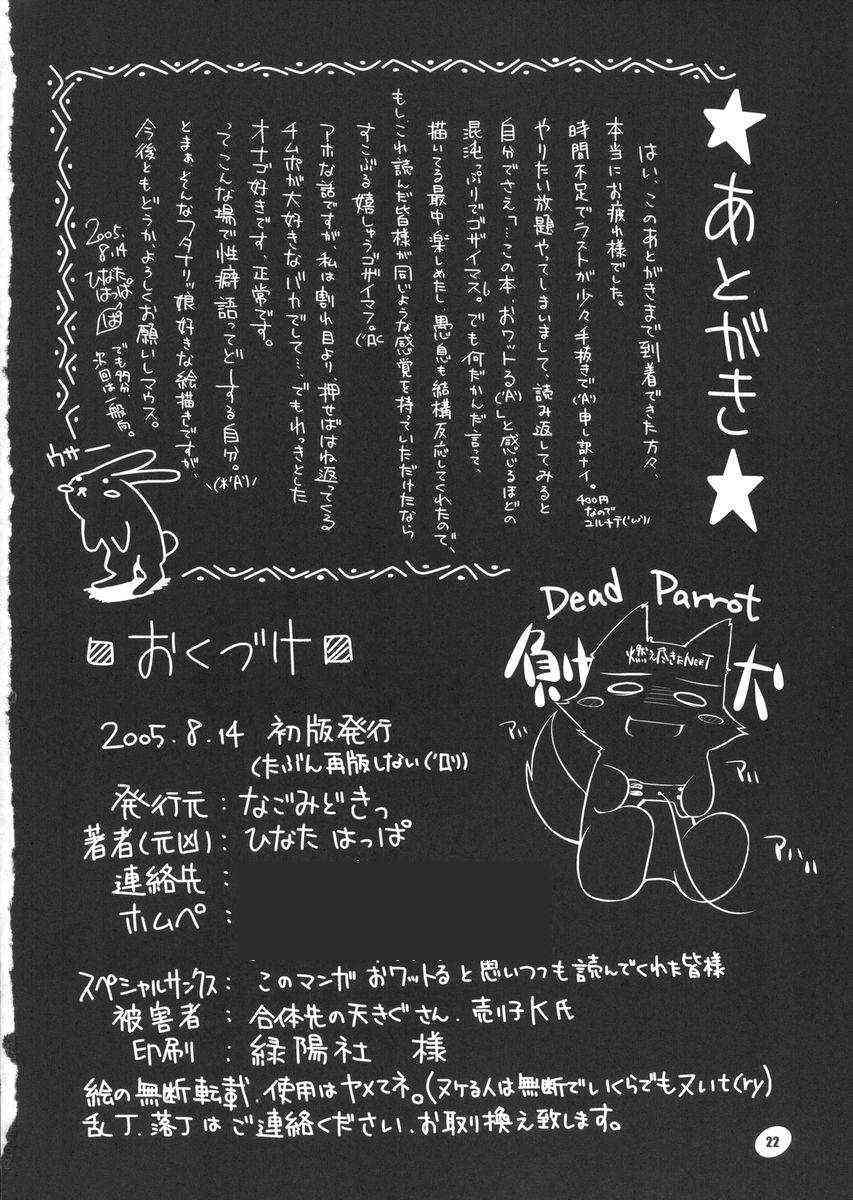 ★あとがき★
はい、このあとがきまで到着できた方々、
本当にお疲れ様でした。
時間不足でラストが少々手抜きで('A`)申し訳ナイ。
400円
なので
ユルチテ('ω`)ﾉ
やりたい放題やってしまいまして、読み返してみると
自分でさえ「…この本、おワットる('A`)」と感じるほどの
混沌っぷりでゴザイマス。でも何だかんだ言って、
描いてる最中楽しめたし 愚息も結構反応してくれたので、
もし、これ読んだ皆様が同じような感覚を持っていただけたなら
すこぶる嬉しゅうゴザイマス。
アホな話ですが、私は割れ目より、押せばはね返ってくる
チムポが大好きなバカでして…、でもれっきとした
オナゴ好きです、正常です。
ってこんな場で性癖語ってどーする自分。
とまぁ、そんなフタナリッ娘好きな絵描きですが、
今後ともどうか、よろしくお願いしマウス。
2005.
8.14
ひなた
はっぱ
ぱ
でも多分、
次回は一般向。
ウサー
Dead Parrot
負け犬
燃え尽きたNEET
アハ
アハ
アハハ
おくづけ
2005.8.14 初版発行
(たぶん再版しない('ロ`))
発行元：なごみどきっ
著者(元凶)：ひなた はっぱ
連絡先：
ホムペ：
スペシャルサンクス：このマンガ おワットると思いつつも読んでくれた皆様
被害者：合体先の天きぐさん、売り子K氏
印刷：緑陽社 様
絵の無断転載、使用はヤメてネ。(ヌケる人は無断でいくらでも ヌいt(ry)
乱丁、落丁はご連絡ください、お取り換え致します。
22